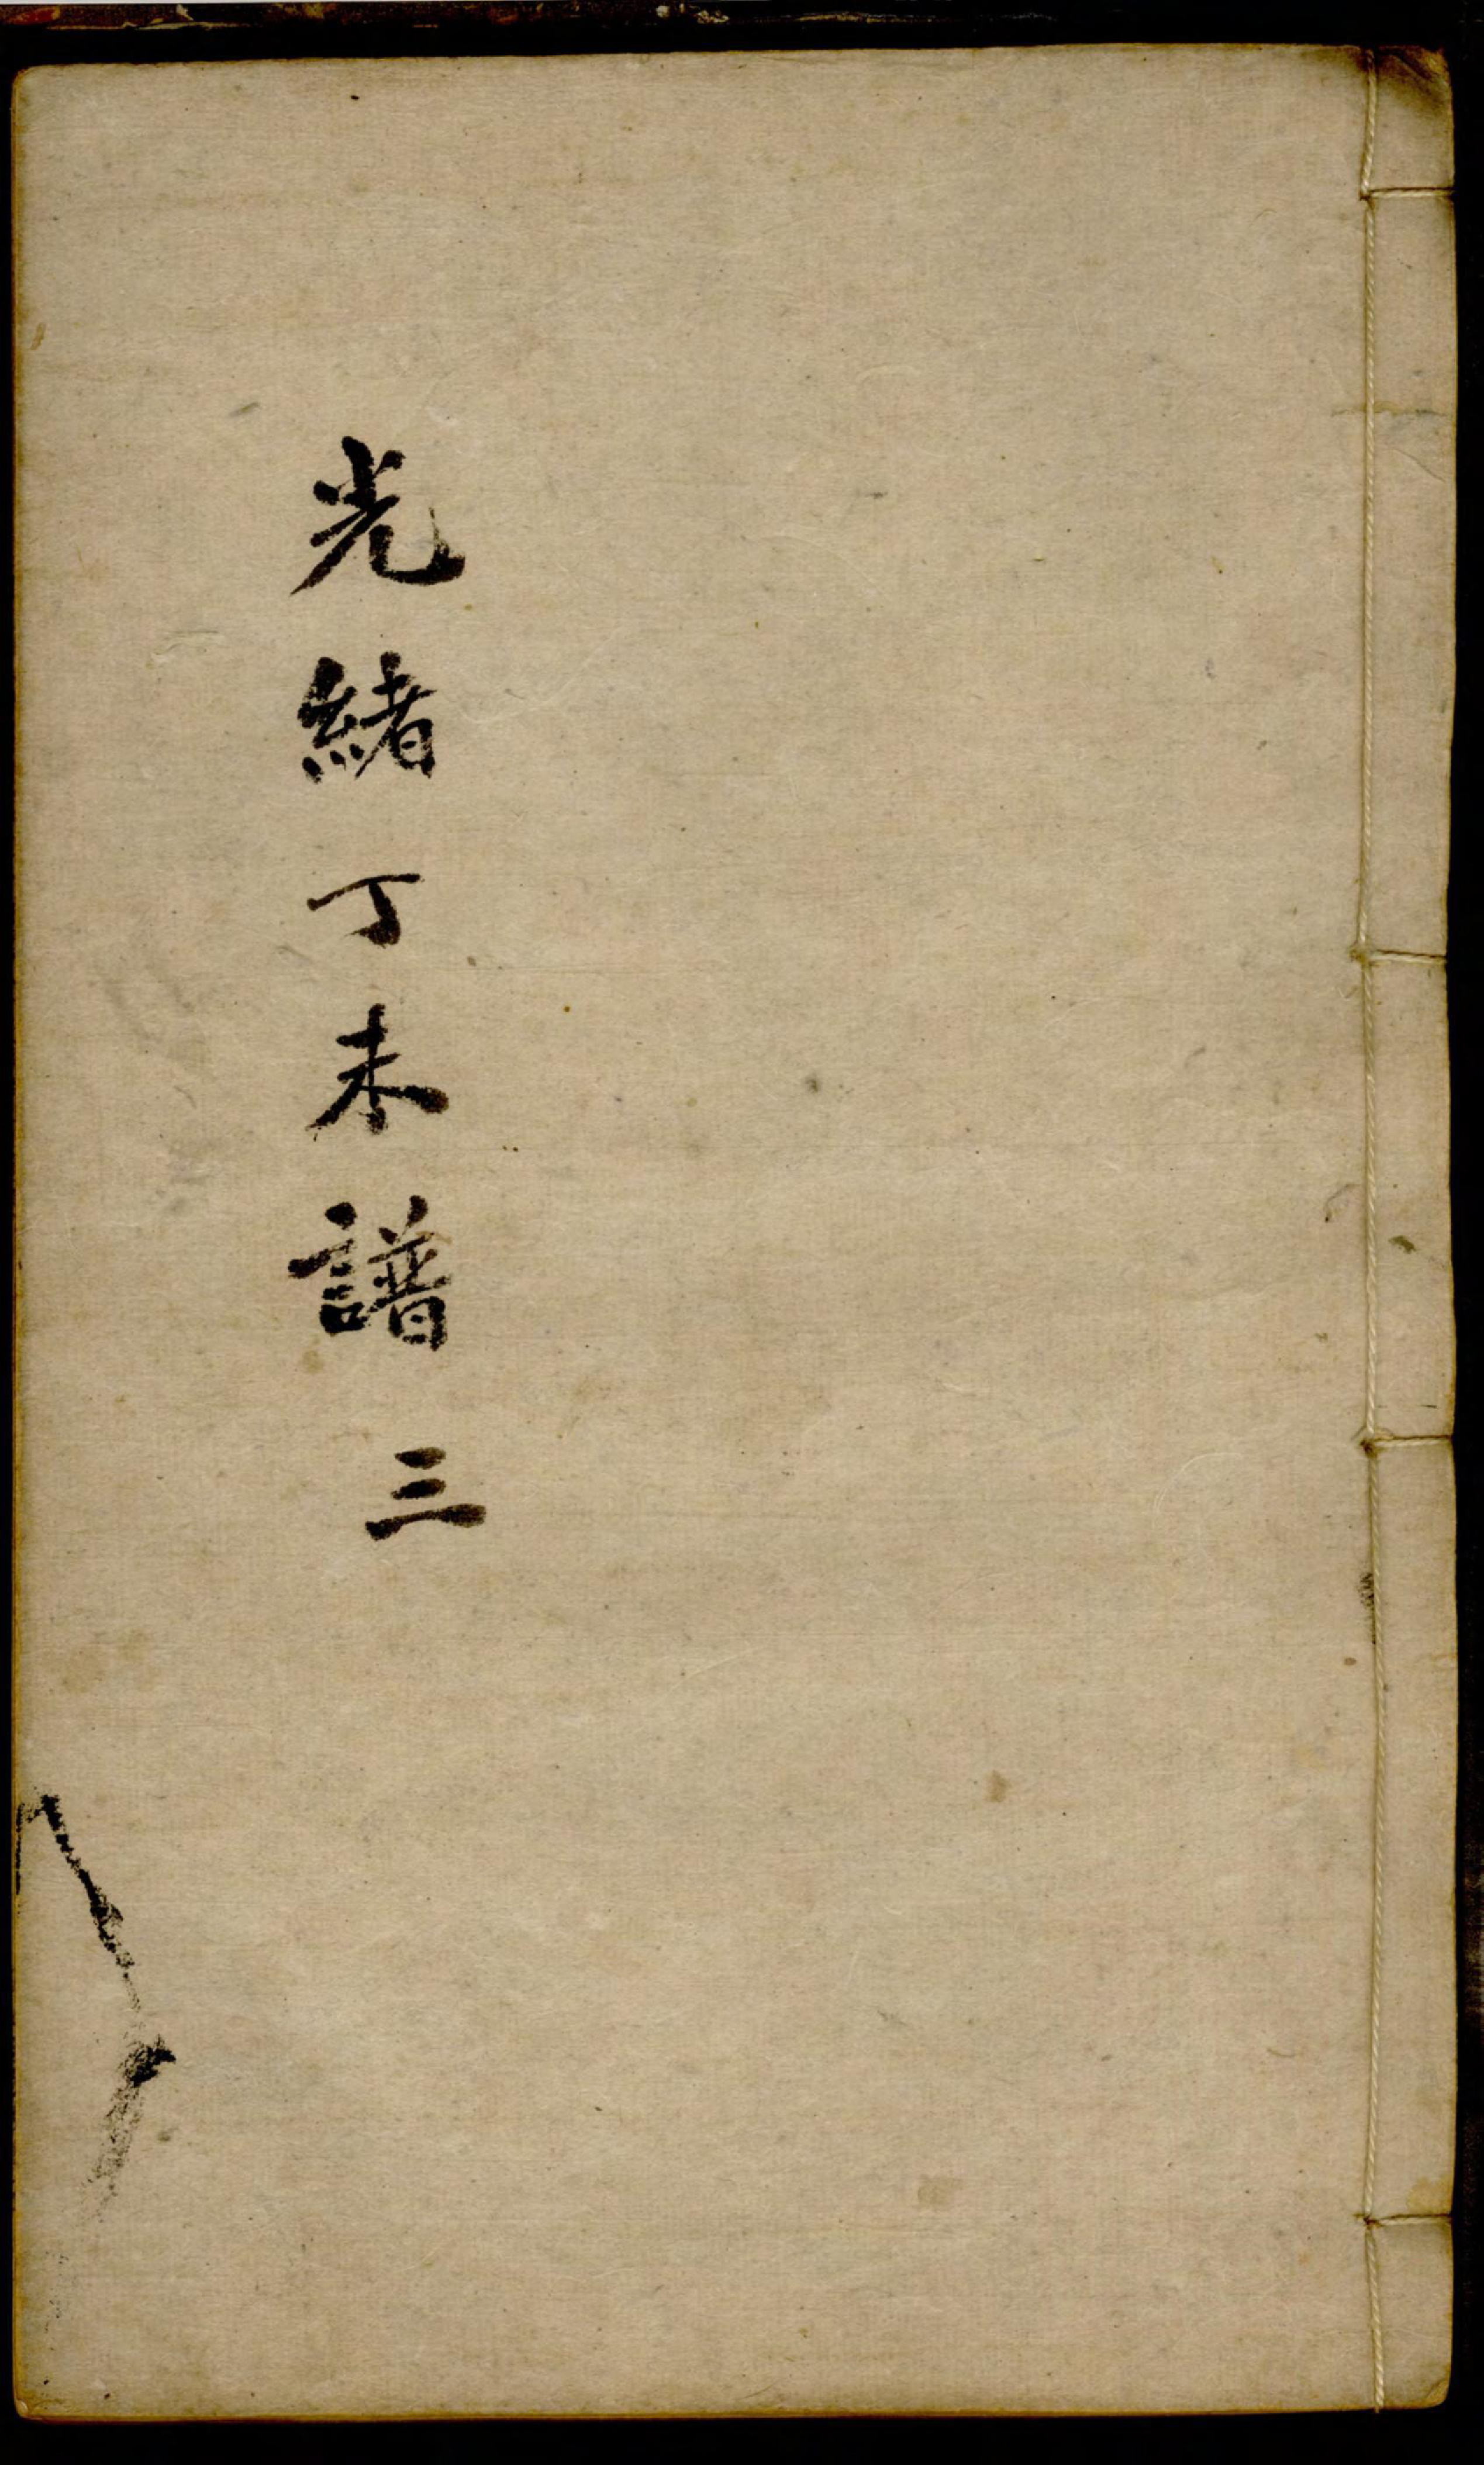 光緒丁未譜三